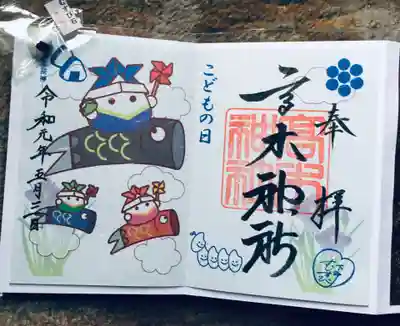 奉拝
高木神社
高木神社
こどもの日
令和元年五月三日